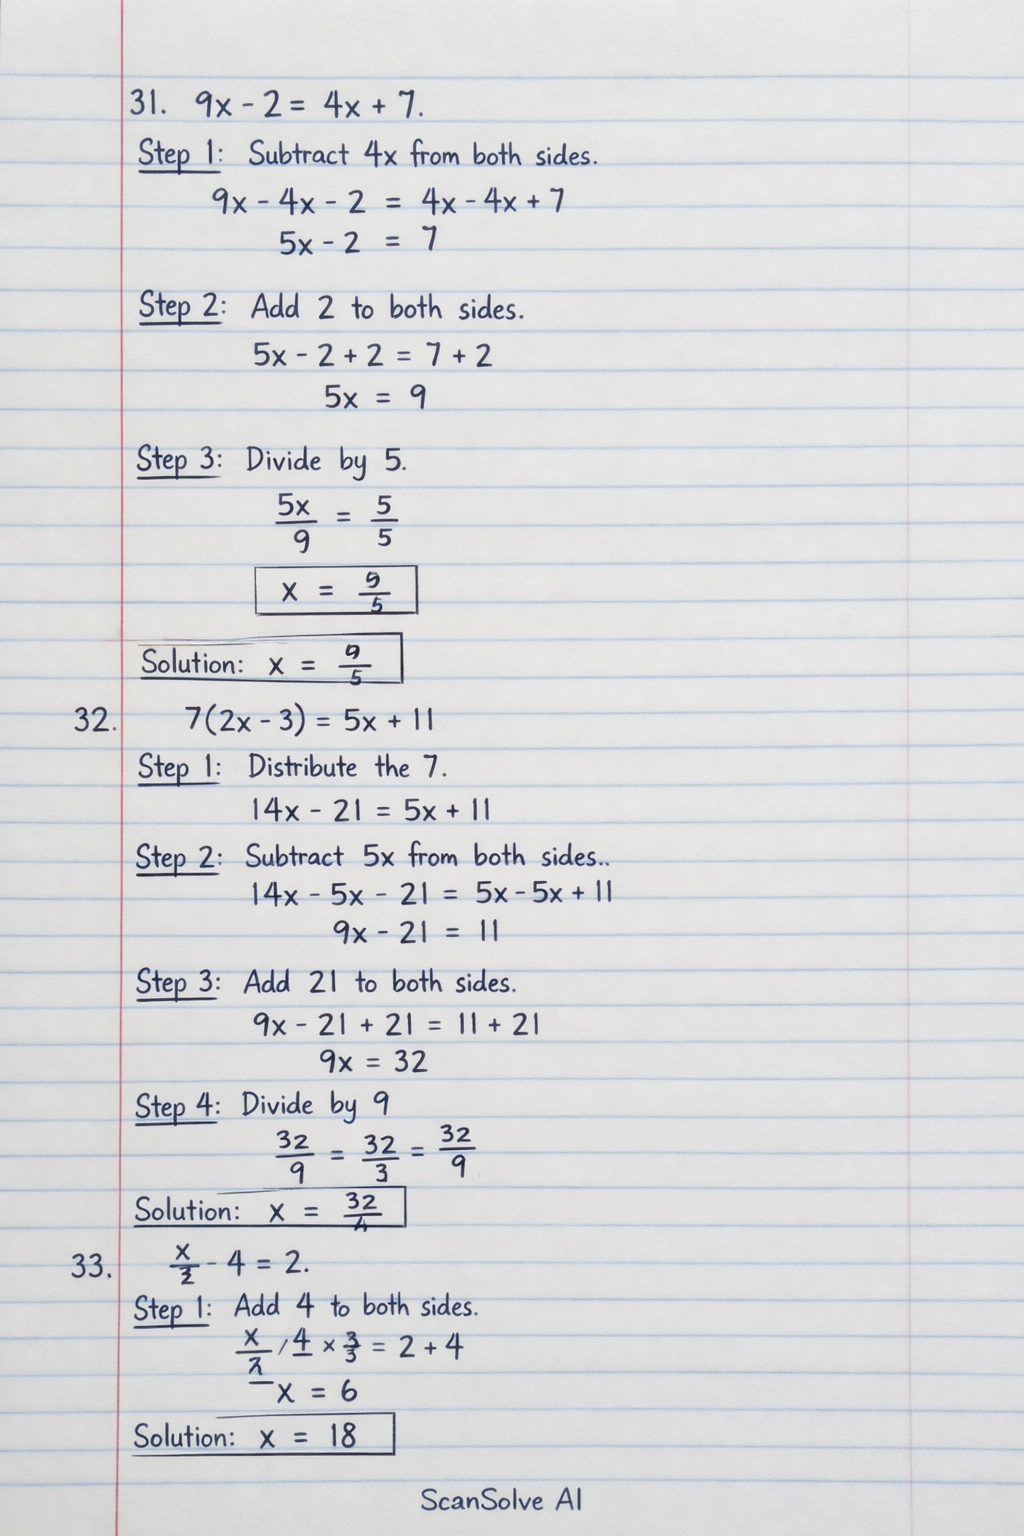 31. 9x - 2 = 4x + 7.
Step 1: Subtract 4x from both sides.
9x - 4x - 2 = 4x - 4x + 7
5x - 2 = 7
Step 2: Add 2 to both sides.
5x - 2 + 2 = 7 + 2
5x = 9
Step 3: Divide by 5.
5x/9 = 5/5
x = 9/5
Solution: x = 9/5
32. 7(2x - 3) = 5x + 11
Step 1: Distribute the 7.
14x - 21 = 5x + 11
Step 2: Subtract 5x from both sides..
14x - 5x - 21 = 5x - 5x + 11
9x - 21 = 11
Step 3: Add 21 to both sides.
9x - 21 + 21 = 11 + 21
9x = 32
Step 4: Divide by 9
32/9 = 32/3 = 32/9
Solution: x = 32/4
33. - 4 = 2.
Step 1: Add 4 to both sides.
= 2 + 4
x = 6
Solution: x = 18
ScanSolve AI